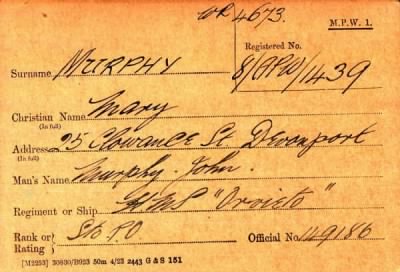 OR 4673.
M.P.W. 1.
Registered No.
8/OPW/1439
Surname MURPHY
Christian Name Mary
(In full)
Address 25 Clowance St. Devonport
(In full)
Man's Name Murphy. John.
Regiment or Ship HMS "Orvieto"
Rank or Rating Sto. P.O Official No. 149186
[M2253] 30830/B923 50m 4/23 2443 G & S 151